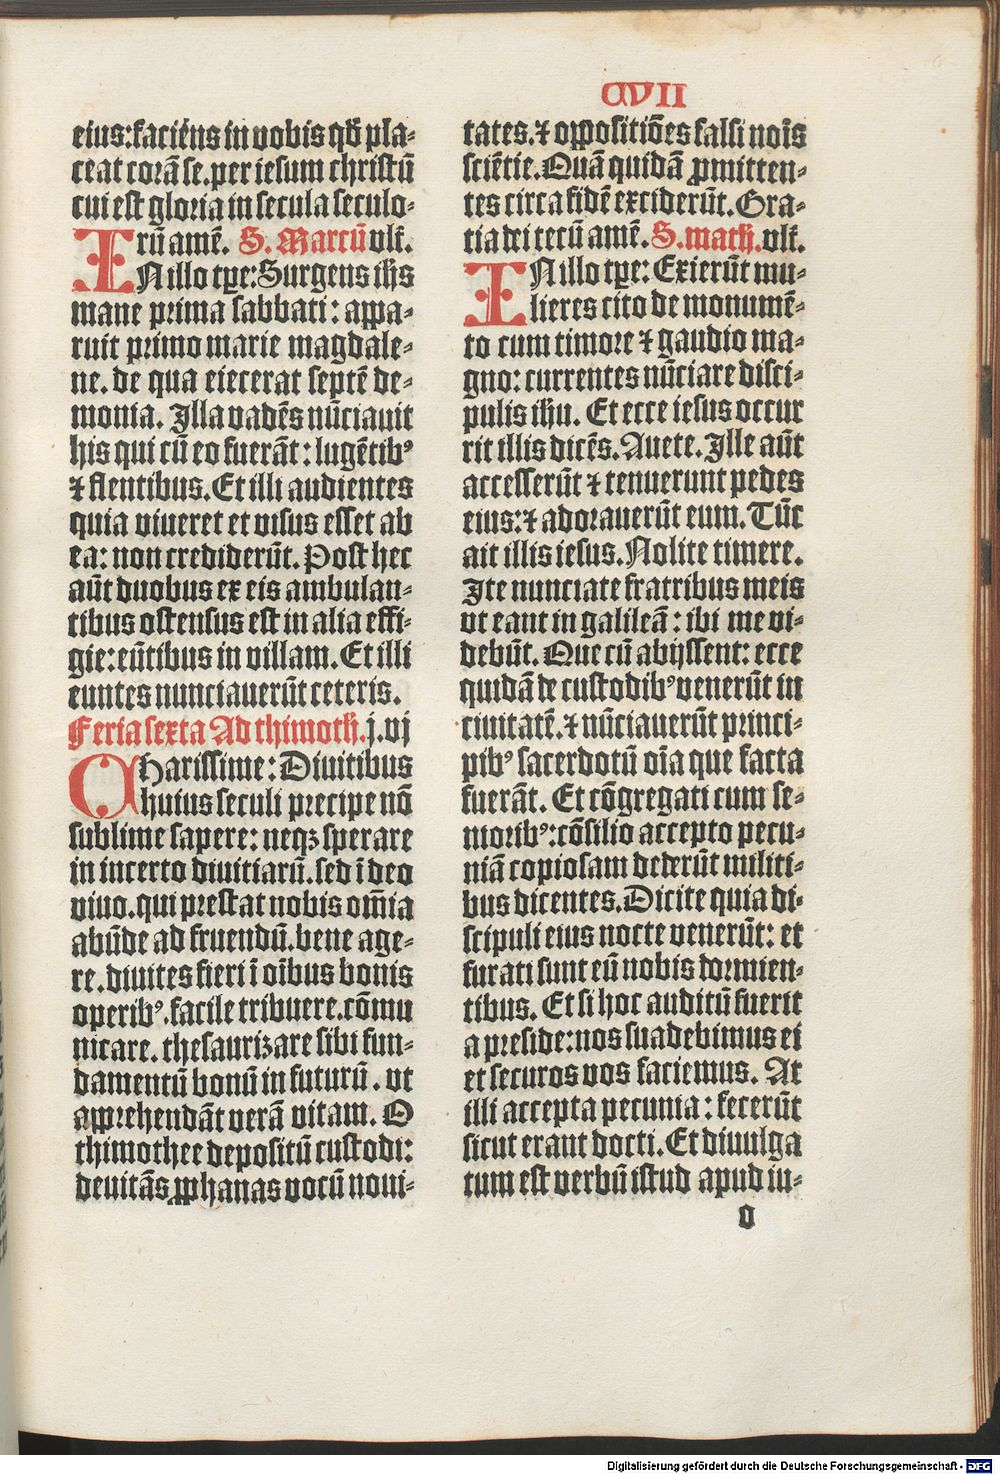 CVII
eius:faciēns in vobis qđ pla⸗
ceat corā se.per iesum christū
cui est gloria in secula seculo⸗
rū amē. S. Marcū vlt̄.
INillo tꝑe:Surgens ihs
mane prima sabbati: appa⸗
ruit primo marie magdale⸗
ne. de qua eiecerat septē de⸗
monia. Illa vadēs nūciauit
his qui cū eo fuerāt: lugētibꝰ
⁊ flentibus.Et illi audientes
quia viueret et visus esset ab
ea: non crediderūt. Post hec
aūt duobus ex eis ambulan⸗
tibus ostensus est in alia effi⸗
gie:eūtibus in villam.Et illi
euntes nunciauerūt ceteris.
Feria sexta Ad thimoth.j.vj
CHarissime:Diuitibus
huius seculi precipe nō
sublime sapere: neqꝫ sperare
in incerto diuitiarū.sed ī deo
viuo.qui prestat nobis om̄ia
abūde ad fruendū.bene age⸗
re.diuites fieri ī oībus bonis
operibꝰ.facile tribuere.cōmu
nicare. thesaurizare sibi fun⸗
damentū bonū in futurū. vt
apprehendāt verā vitam. O
thimothee depositū custodi:
deuitās ꝓphanas vocū noui⸗
tates.⁊ oppositiōes falsi nois̄
sciētie.Quā quidā ꝓmitten⸗
tes circa fidē exciderūt.Gra⸗
tia dei tecū amē.S.math.vlt̄.
INillo tꝑe: Exierūt mu⸗
lieres cito de monumē⸗
to cum timore ⁊ gaudio ma⸗
gno: currentes nūciare disci⸗
pulis ihu. Et ecce iesus occur
rit illis dicēs.Auete.Ille aūt
accesserūt ⁊ tenuerunt pedes
eius:⁊ adorauerūt eum.Tūc
ait illis iesus.Nolite timere.
Ite nunciate fratribus meis
vt eant in galileā: ibi me vi⸗
debūt. Que cū abijssent: ecce
quidā de custodibꝰ venerūt in
ciuitatē.⁊ nūciauerūt princi⸗
pibꝰ sacerdotū oīa que facta
fuerāt. Et cōgregati cum se⸗
nioribꝰ:cōsilio accepto pecu⸗
niā copiosam dederūt militi⸗
bus dicentes.Dicite quia di⸗
scipuli eius nocte venerūt: et
furati sunt eū nobis dormien⸗
tibus. Et si hoc auditū fuerit
a preside:nos suadebimus ei
et securos vos faciemus. At
illi accepta pecunia: fecerūt
sicut erant docti.Et diuulga
tum est verbū istud apud iu⸗
o
Digitalisierung gefördert durch die Deutsche Forschungsgemeinschaft - DFG